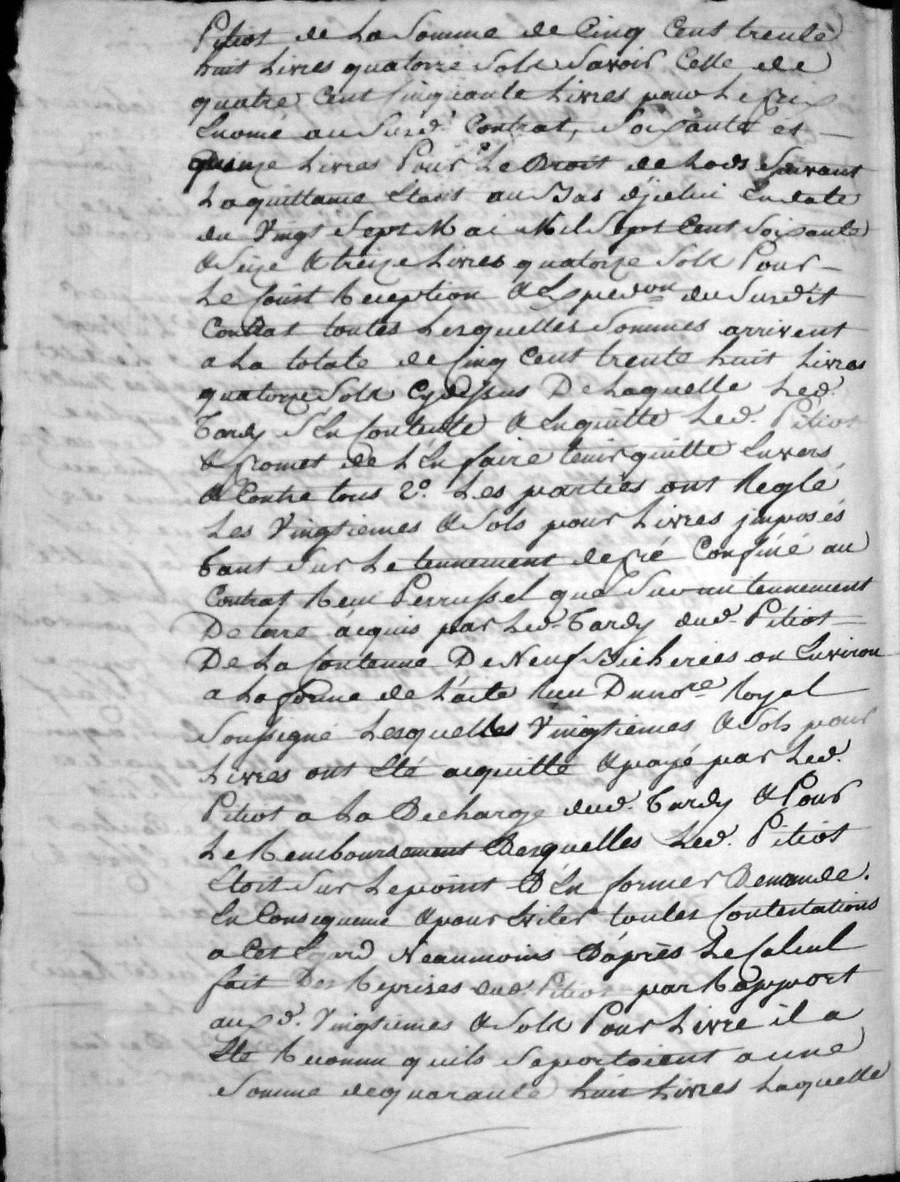 Pitiot de La Somme de Cinq Cent trente
huit Livres quatorze Sols Savoir Celle de
quatre Cent Cinquante Livres pour Le Prix
Enomé au Surd. Contrat, Soixante et
quinze Livres Pour Le Droit de Lods Suivant
La quittance Etant au Bas d'jcelui En date
du Vingt Sept Mai Mil Sept Cent Soixante
& Seize & treize Livres quatorze Sols Pour
Le Coust Reception & Expedon du Surdit
Contrat toutes Lesquelles Sommes arrivent
a La totale de Cinq Cent trente huit Livres
quatorze Sols Cydessus De Laquelle Led.
Tardy S'En Contente & En quitte Led. Pitiot
& Promet de L'En faire tenir quitte Envers
& Contre tous 2o. Les parties ont Reglé
Les Vingtiemes & Sols pour Livres jmposés
tant Sur Le tennement de Pré Confiné au
Contrat Reçu Perrussel que Sur un tennement
De terre acquis par Led. Tardy dud. Pitiot
De La Contenue De Neuf Bicherées ou Environ
a La forme de L'acte Reçu Du nore Royal
Soussigné Lesquelles Vingtiemes & Sols pour
Livres ont Eté acquitté & payé par Led.
Pitiot a La Decharge dud. Tardy & Pour
Le Remboursement Desquelles Led. Pitiot
Etoit Sur Le point D'En former Demande.
En Consequence & pour Eviter toutes Contestations
a Cet Egard Neaumoins D'après Le Calcul
fait Des Reprises dud. Pitiot par Rapport
aux d. Vingtiemes & Sols Pour Livre il a
Eté Reconnu quils Seportoient a une
Somme de quarante huit Livres Laquelle